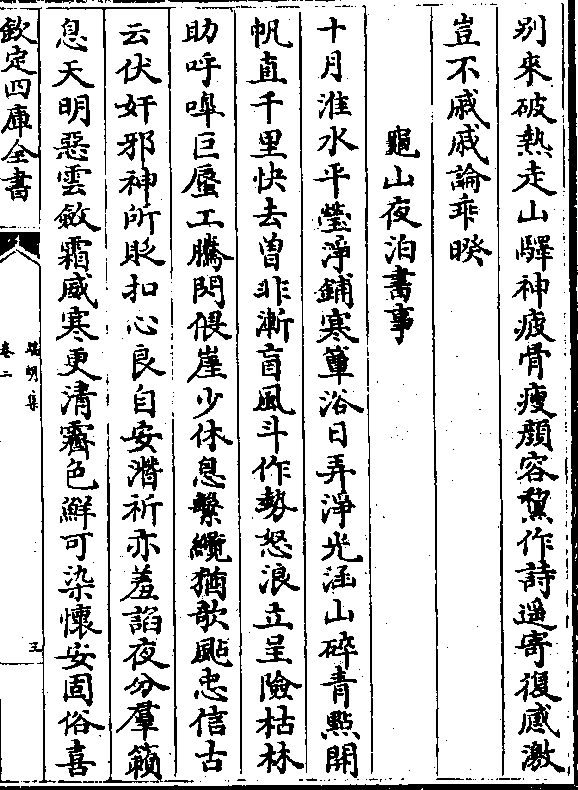 別來破熱走山驛神疲骨瘦顔容黧作詩遥寄復感激
豈不戚戚論乖暌
龜山夜泊書事
十月淮水平瑩淨鋪寒簟浴日弄淨光涵山碎青㸃開
帆直千里快去曽非漸盲風斗作勢怒浪立呈險枯林
助呼嘷巨蜃工騰閃偎崖少休息繫纜猶歌颭忠信古
云伏奸邪神所貶扣心良自安濳祈亦羞謟夜分羣籟
息天明惡雲斂霜威寒更清霽色鮮可染懷安固俗喜
欽定四庫全書
端明集
卷二
三